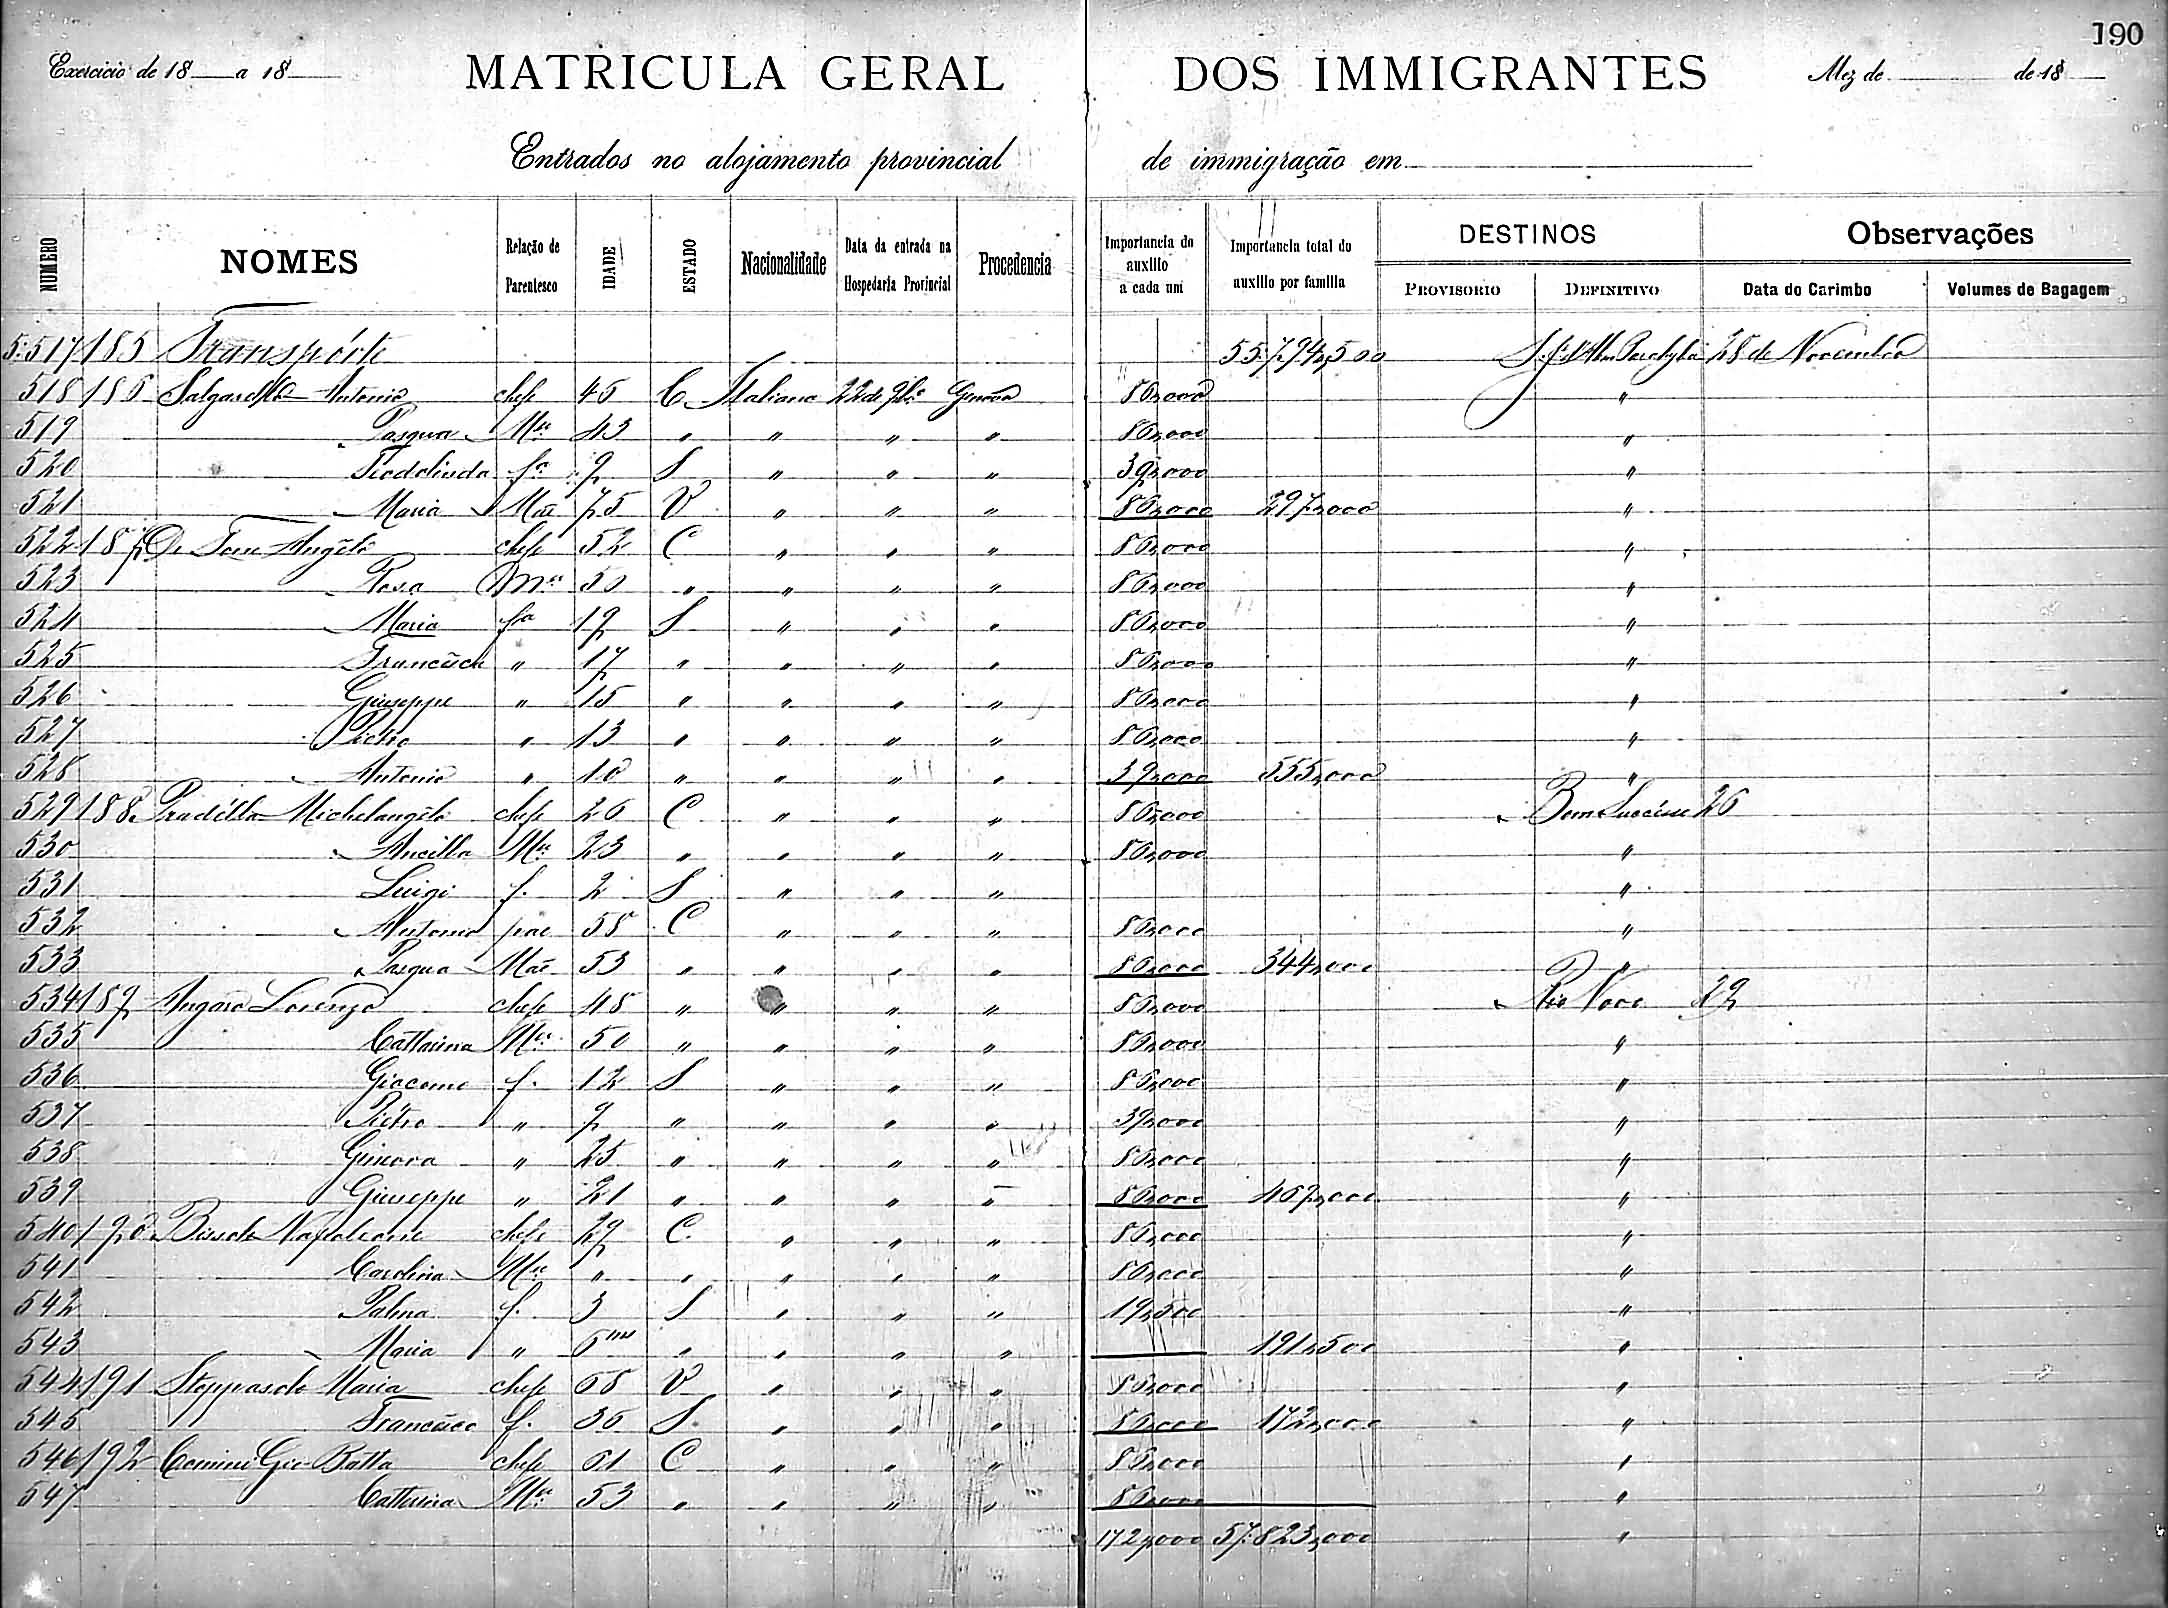 190
Exercicio de 18 a 18 MATRICULA GERAL DOS IMMIGRANTES Mez de de 18
Entrados no alojamento provincial de immigração em
NUMERO NOMES Relação de Parentesco IDADE ESTADO Nacionalidade Data da entrada na Hospedaria Provincial Procedencia Importancia do auxilio a cada um Importancia total do auxilio por familia DESTINOS Observações
PROVISORIO DEFINITIVO Data do Carimbo Volumes de Bagagem
5:517 185 Transpórte 55:794,500 28 de Novembro
518 186 Antonio chefe 45 C Italiana 22 de 9bro Genova 86,000 "
519 Pasqua Mer 43 " " " " 86,000 "
520 Teodolinda fa 9 S " " " 39,000 "
521 Maria Mãi 75 V " " " 86,000 297,000 "
522 187 De Toni Angelo chefe 52 C " " " 86,000 "
523 Rosa Mer 50 " " " " 86,000 "
524 Maria fa 19 S " " " 86,000 "
525 Francisca " 17 " " " " 86,000 "
526 Giuseppe " 15 " " " " 86,000 "
527 Pietro " 13 " " " " 86,000 "
528 Antonio " 10 " " " " 39,000 555,000 "
529 188 Pradella Michelangelo chefe 26 C " " " 86,000 Bom Successo 26
530 Ancilla Mer 23 " " " " 86,000 "
531 Luigi f. 2 S " " " "
532 Antonio pae 58 C " " " 86,000 "
533 Pasqua Mãe 53 " " " " 86,000 344,000 "
534 189 Angaro Lorenzo chefe 48 " " " " 86,000 Rio Novo 29
535 Cattarina Mer 50 " " " " 86,000 "
536 Giacomo f. 12 S " " " 86,000 "
537 Pietro " 9 " " " " 39,000 "
538 Ginevra " 25 " " " " 86,000 "
539 Giuseppe " 21 " " " " 86,000 469,000 "
540 190 Napoleone chefe 29 C " " " 86,000 "
541 Carolina Mer " " " " " 86,000 "
542 Palma f. 3 S " " " 19,500 "
543 Maria " 6 ms " " " " 191,500 "
544 191 Maria chefe 68 V " " " 86,000 "
545 Francisco f. 36 S " " " 86,000 172,000 "
546 192 Comini Gio Batta chefe 61 C " " " 86,000 "
547 Catterina Mer 53 " " " " 86,000 "
172,000 57:823,000 "